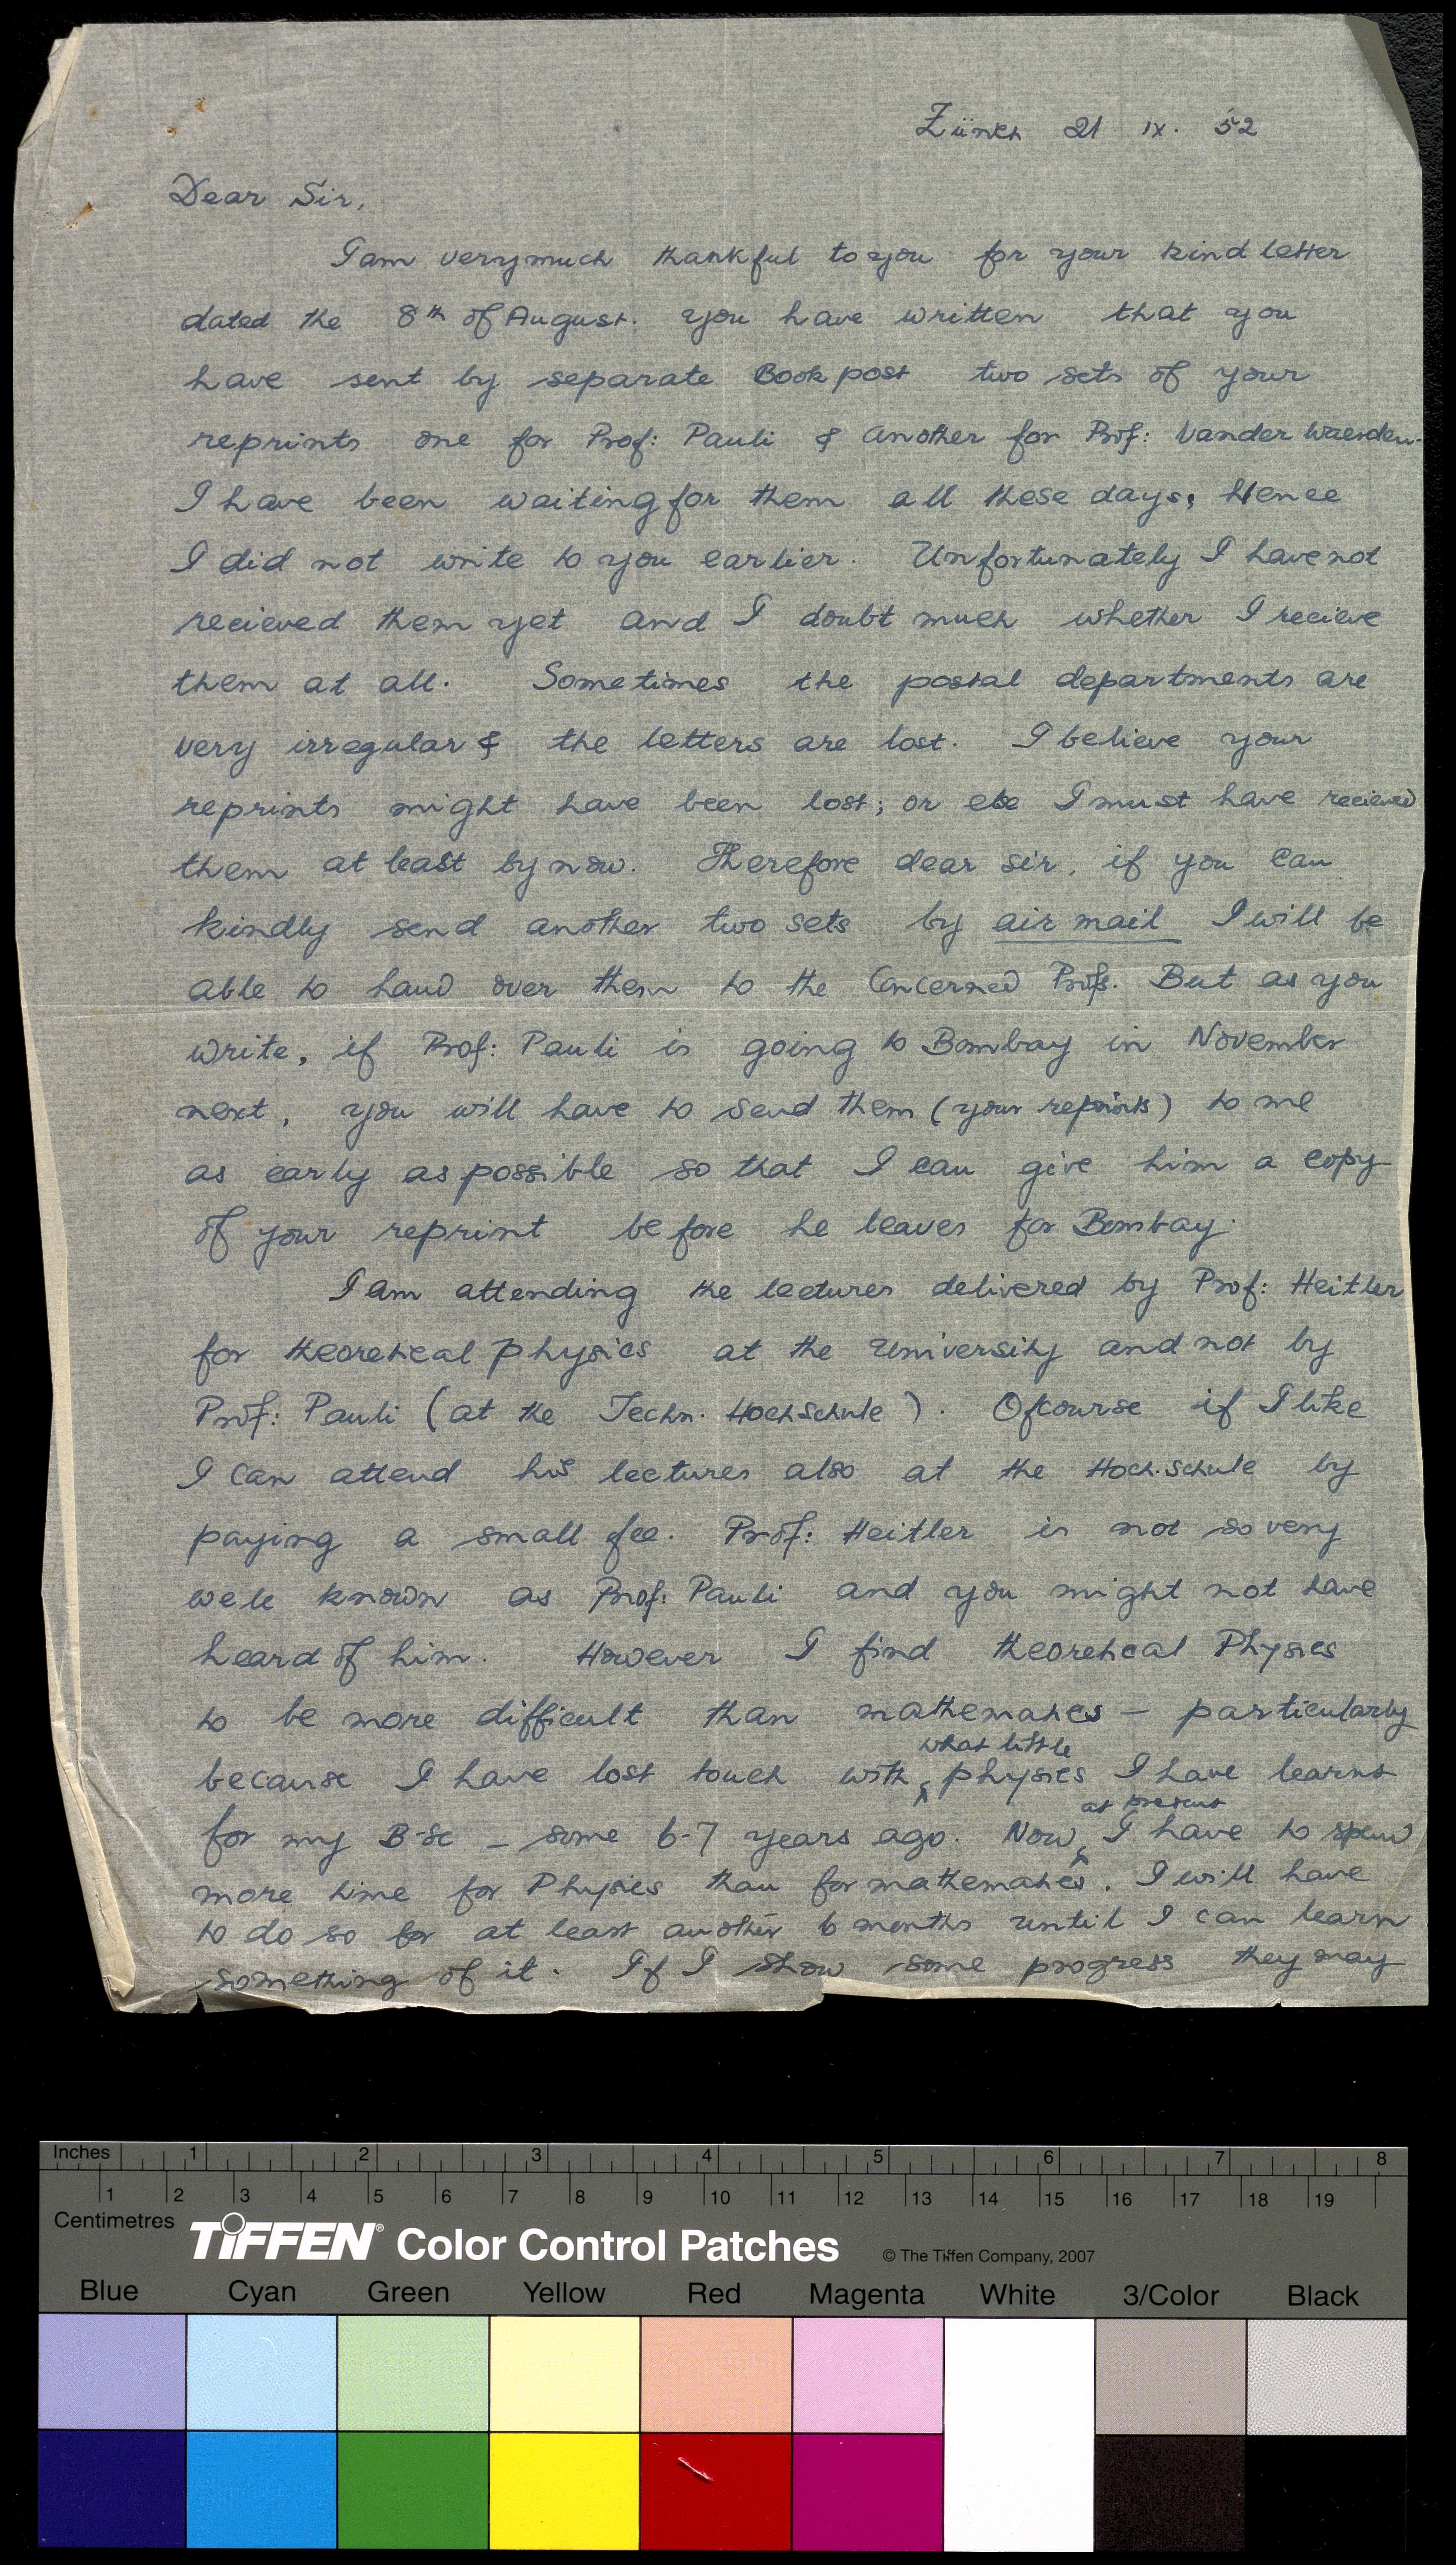 Zürich 21 IX. 52
Dear Sir,
I am very much thankful to you for your kind letter
dated the 8th of August. You have written that you
have sent by separate Book post two sets of your
reprints one for Prof: Pauli & another for Prof: Vander Waerden.
I have been waiting for them all these days; Hence
I did not write to you earlier. Unfortunately I have not
recieved them yet and I doubt much whether I recieve
them at all. Sometimes the postal departments are
very irregular & the letters are lost. I believe your
reprints might have been lost; or else I must have recieved
them at least by now. Therefore dear sir, if you can
kindly send another two sets by air mail I will be
able to hand over them to the Concerned Profs. But as you
write, if Prof: Pauli is going to Bombay in November
next, you will have to send them (your reprints) to me
as early as possible so that I can give him a copy
of your reprint before he leaves for Bombay.
I am attending the lectures delivered by Prof: Heitler
for theoretical physics at the University and not by
Prof: Pauli (at the Techn. Hochschule). Ofcourse if I like
I can attend his lectures also at the Hoch.schule by
paying a small fee. Prof: Heitler is not so very
well known as Prof: Pauli and you might not have
heard of him. However I find theoretical Physics
to be more difficult than mathematics — particularly
what little
because I have lost touch with physics I have learnt
at present
for my B-Sc — some 6-7 years ago. Now I have to spend
more time for Physics than for mathematics. I will have
to do so for at least another 6 months until I can learn
something of it. If I show some progress they may
Inches 1 2 3 4 5 6 7 8
1 2 3 4 5 6 7 8 9 10 11 12 13 14 15 16 17 18 19
Centimetres
TIFFEN® Color Control Patches © The Tiffen Company, 2007
Blue Cyan Green Yellow Red Magenta White 3/Color Black